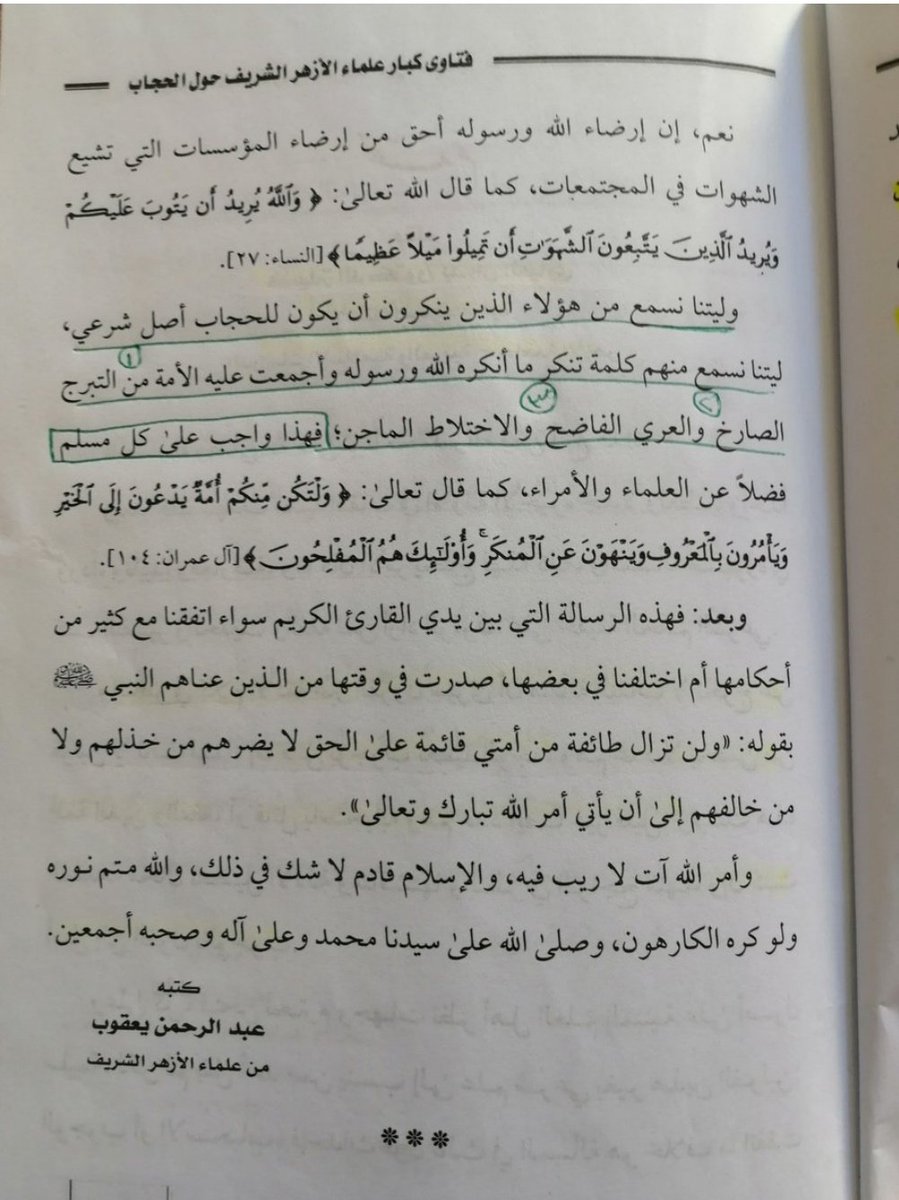 فتاوى كبار علماء الأزهر الشريف حول الحجاب
نعم، إن إرضاء الله ورسوله أحق من إرضاء المؤسسات التي تشيع
الشهوات في المجتمعات، كما قال الله تعالىٰ: ﴿ وَاللَّهُ يُرِيدُ أَن يَتُوبَ عَلَيْكُمْ
وَيُرِيدُ الَّذِينَ يَتَّبِعُونَ الشَّهَوَاتِ أَن تَمِيلُوا مَيْلًا عَظِيمًا ﴾ [النساء: ٢٧].
وليتنا نسمع من هؤلاء الذين ينكرون أن يكون للحجاب أصل شرعي،
ليتنا نسمع منهم كلمة تنكر ما أنكره الله ورسوله وأجمعت عليه الأمة من التبرج
١
الصارخ والعري الفاضح والاختلاط الماجن؛ فهذا واجب علىٰ كل مسلم
٢ ٣
فضلاً عن العلماء والأمراء، كما قال تعالىٰ: ﴿ وَلْتَكُن مِّنكُمْ أُمَّةٌ يَدْعُونَ إِلَى الْخَيْرِ
وَيَأْمُرُونَ بِالْمَعْرُوفِ وَيَنْهَوْنَ عَنِ الْمُنكَرِ ۚ وَأُولَٰئِكَ هُمُ الْمُفْلِحُونَ ﴾ [آل عمران: ١٠٤].
وبعد: فهذه الرسالة التي بين يدي القارئ الكريم سواء اتفقنا مع كثير من
أحكامها أم اختلفنا في بعضها، صدرت في وقتها من الذين عناهم النبي ﷺ
بقوله: «ولن تزال طائفة من أمتي قائمة علىٰ الحق لا يضرهم من خذلهم ولا
من خالفهم إلىٰ أن يأتي أمر الله تبارك وتعالىٰ».
وأمر الله آت لا ريب فيه، والإسلام قادم لا شك في ذلك، والله متم نوره
ولو كره الكارهون، وصلىٰ الله علىٰ سيدنا محمد وعلىٰ آله وصحبه أجمعين.
كتبه
عبد الرحمن يعقوب
من علماء الأزهر الشريف
***